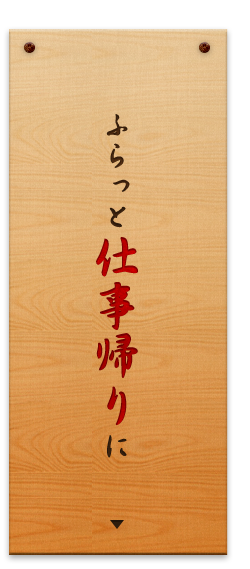 ふらっと仕事帰りに